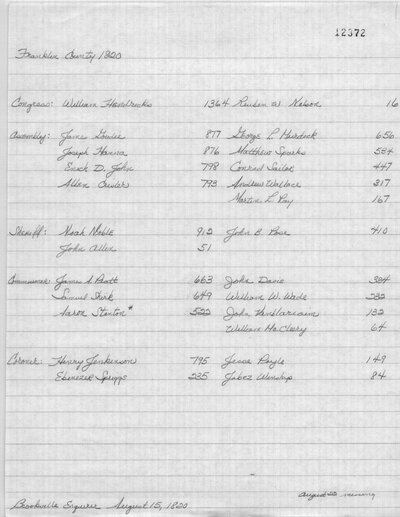 12372
Franklin County 1820
Congress: William Hendricks 1364 Reuben W. Nelson 16
Assembly: James Goudie 877 George L. Murdock 656
Joseph Hanna 876 Matthew Sparks 584
Enoch D. John 798 Conrad Sailor 447
Allen 793 Andrew Wallace 317
Martin L. Ray 167
Sheriff: Noah Noble 912 John B. Rose 410
John Allen 51
Commissioner: James S. 663 John Davis 384
Samuel 649 William W. Wade 382
Aaron Stanton* 522 John 182
William McCleery 64
Coroner: Henry Jenkinson 795 Jesse 149
Ebenezer Spriggs 235 Jabez Winship 84
August 22 missing
Brookville Enquirer August 15, 1820